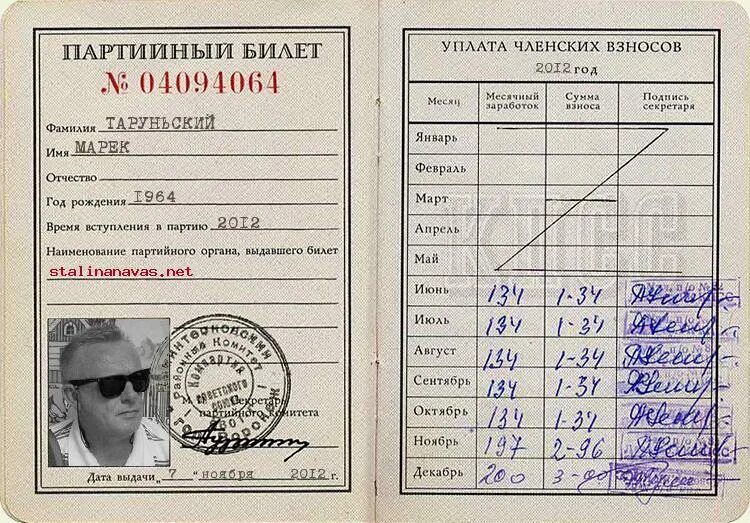 ПАРТИЙНЫЙ БИЛЕТ
№ 04094064
Фамилия ТАРУНЬСКИЙ
Имя МАРЕК
Отчество
Год рождения 1964
Время вступления в партию 2012
Наименование партийного органа, выдавшего билет
stalinanavas.net
Районный Комитет
Компартия
Советского
Союза
М. П. Секретарь
партийного комитета
Дата выдачи „7“ ноября 2012 г.
УПЛАТА ЧЛЕНСКИХ ВЗНОСОВ
2012 год
Месяц Месячный заработок Сумма взноса Подпись секретаря
Январь
Февраль
Март
Апрель
Май
Июнь 134 1-34
Июль 134 1-34
Август 134 1-34
Сентябрь 134 1-34
Октябрь 134 1-34
Ноябрь 197 2-96
Декабрь 200 3-00
КПСС